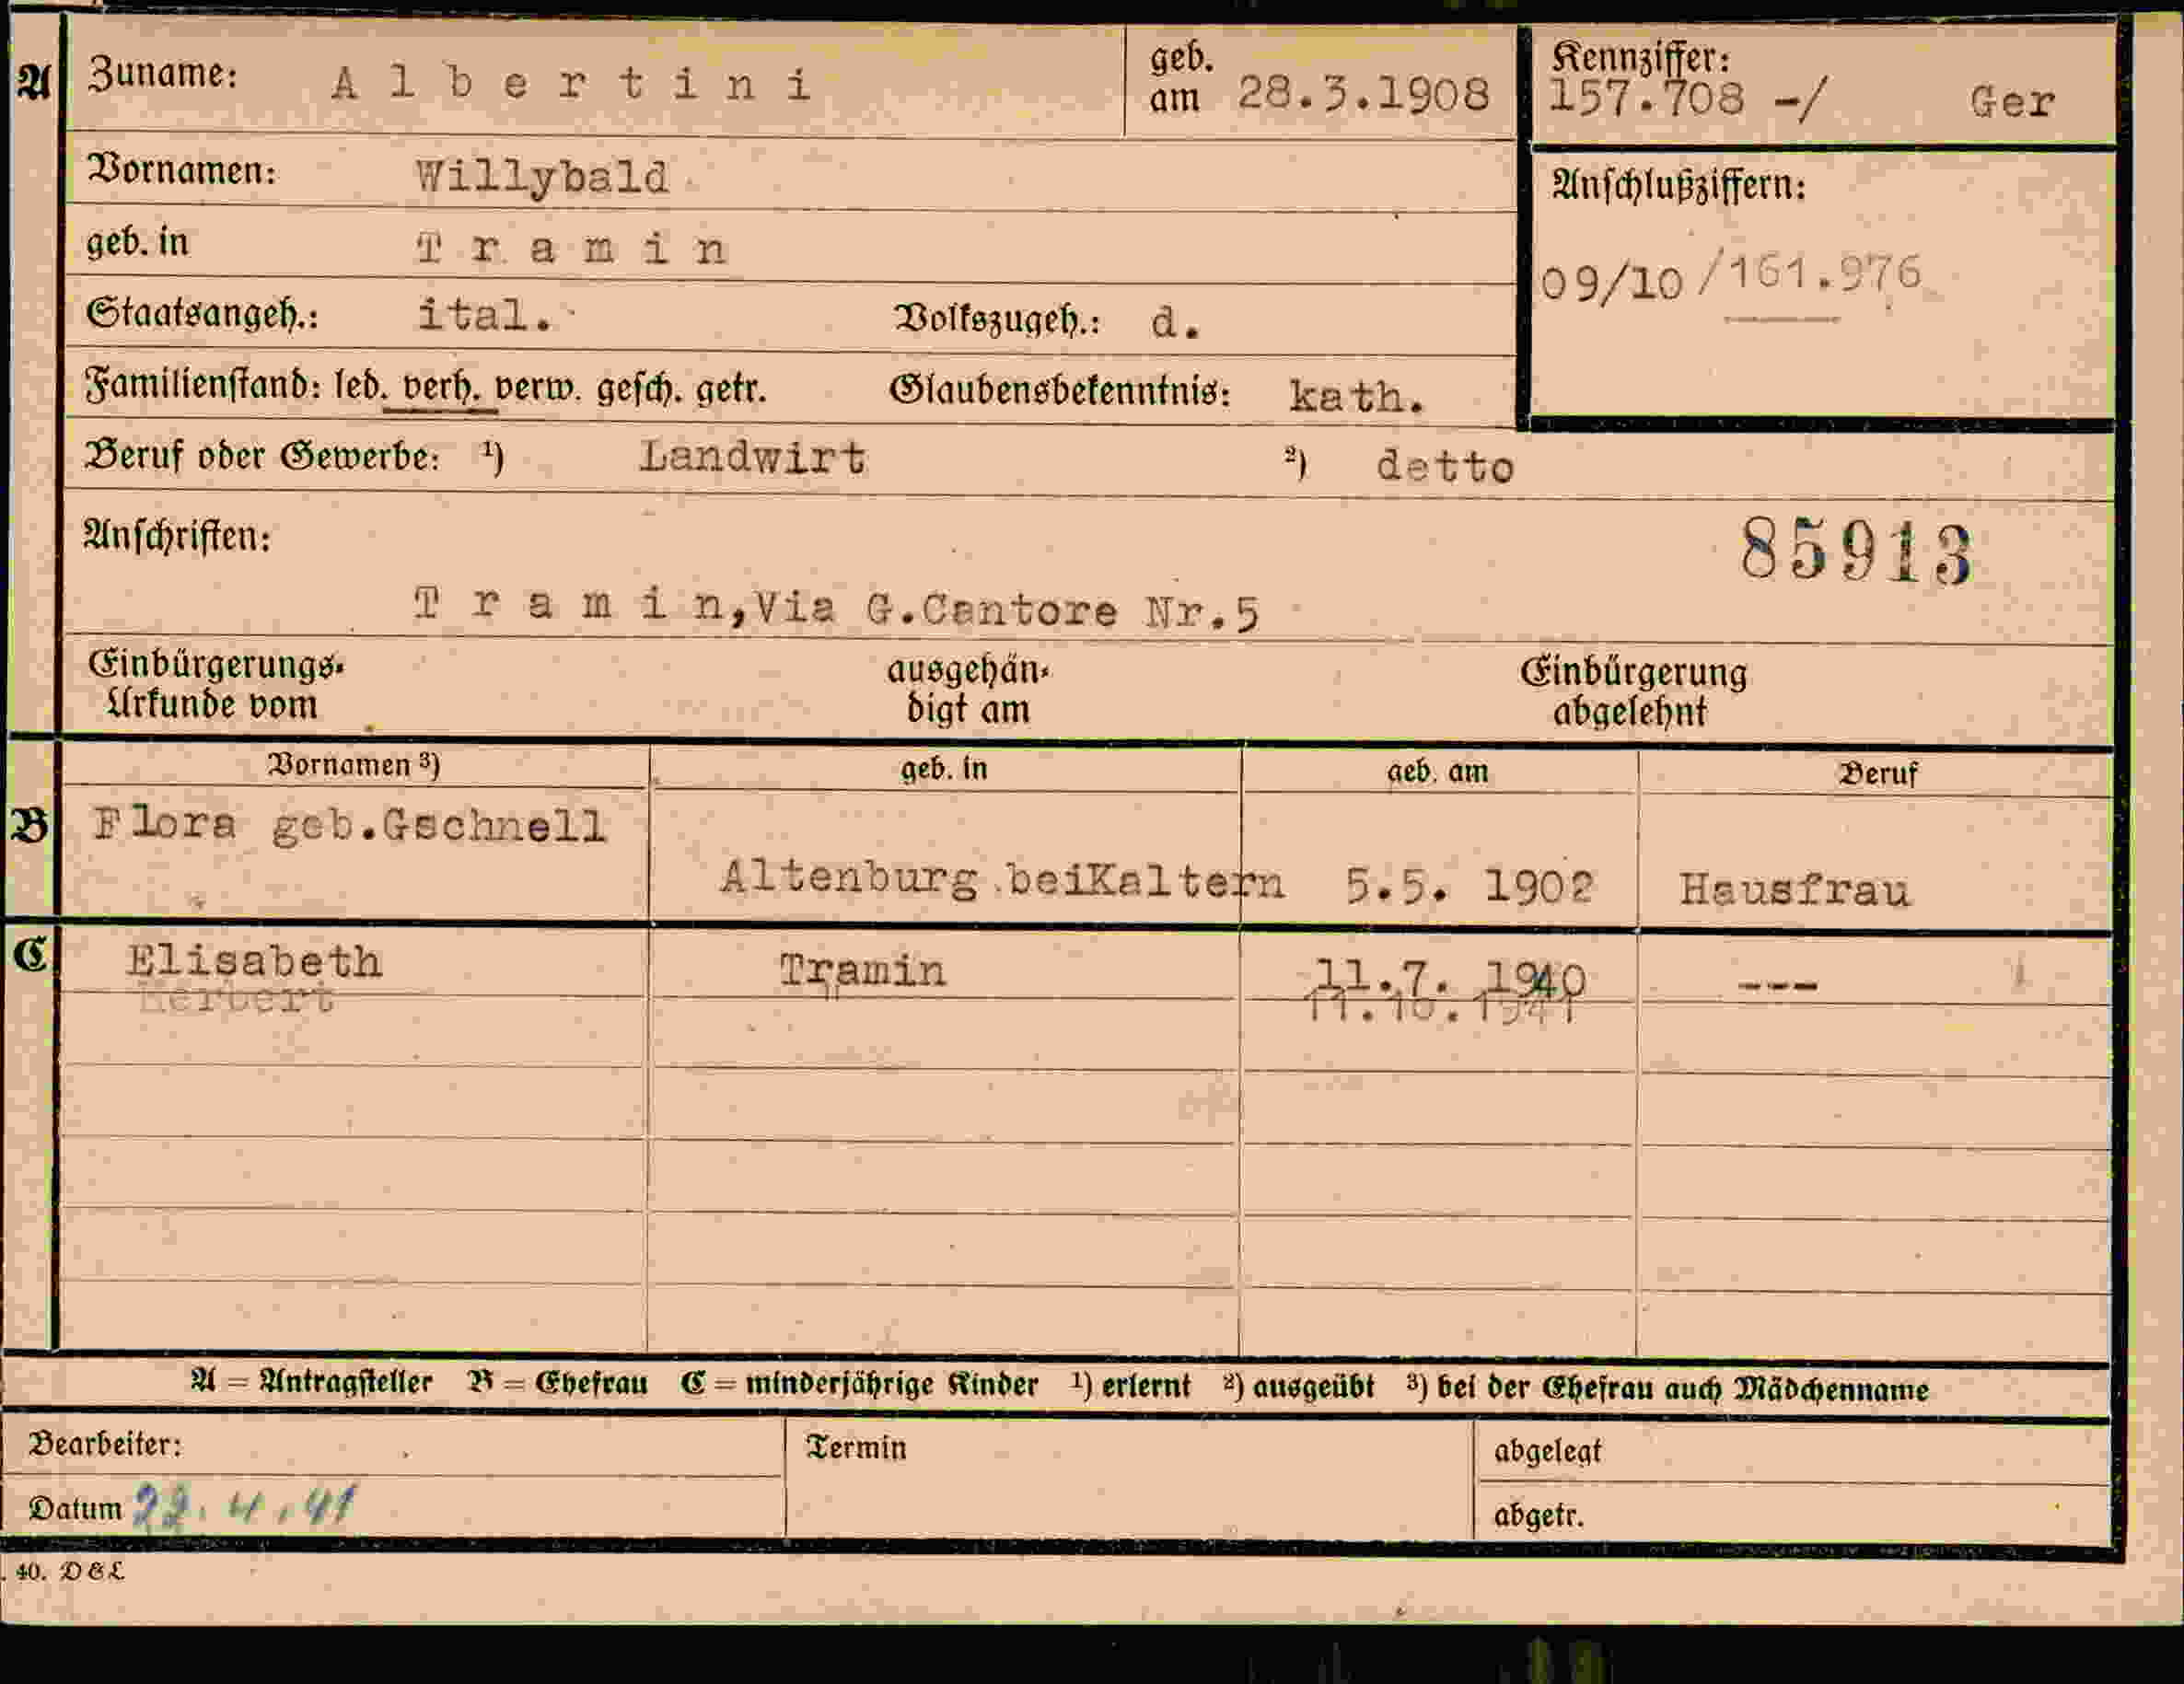 A Zuname: Albertini geb. am 28.3.1908 Kennziffer: 157.708 -/ Ger
Vornamen: Willybald Anschlußziffern:
geb. in Tramin 09/10/161.976
Staatsangeh.: ital. Volkszugeh.: d.
Familienstand: led. verh. verw. gesch. getr. Glaubensbekenntnis: kath.
Beruf oder Gewerbe: ¹) Landwirt ²) detto
Anschriften: 85913
Tramin,Via G.Cantore Nr.5
Einbürgerungs- ausgehän- Einbürgerung
Urkunde vom digt am abgelehnt
Vornamen ³) geb. in geb. am Beruf
B Flora geb.Gschnell
Altenburg beiKaltern 5.5. 1902 Hausfrau
C Elisabeth Tramin 11.7. 1940 ---
Herbert " 11.10.1941
A = Antragsteller B = Ehefrau C = minderjährige Kinder ¹) erlernt ²) ausgeübt ³) bei der Ehefrau auch Mädchenname
Bearbeiter: Termin abgelegt
Datum 22.4.41 abgetr.
. 40. D & L